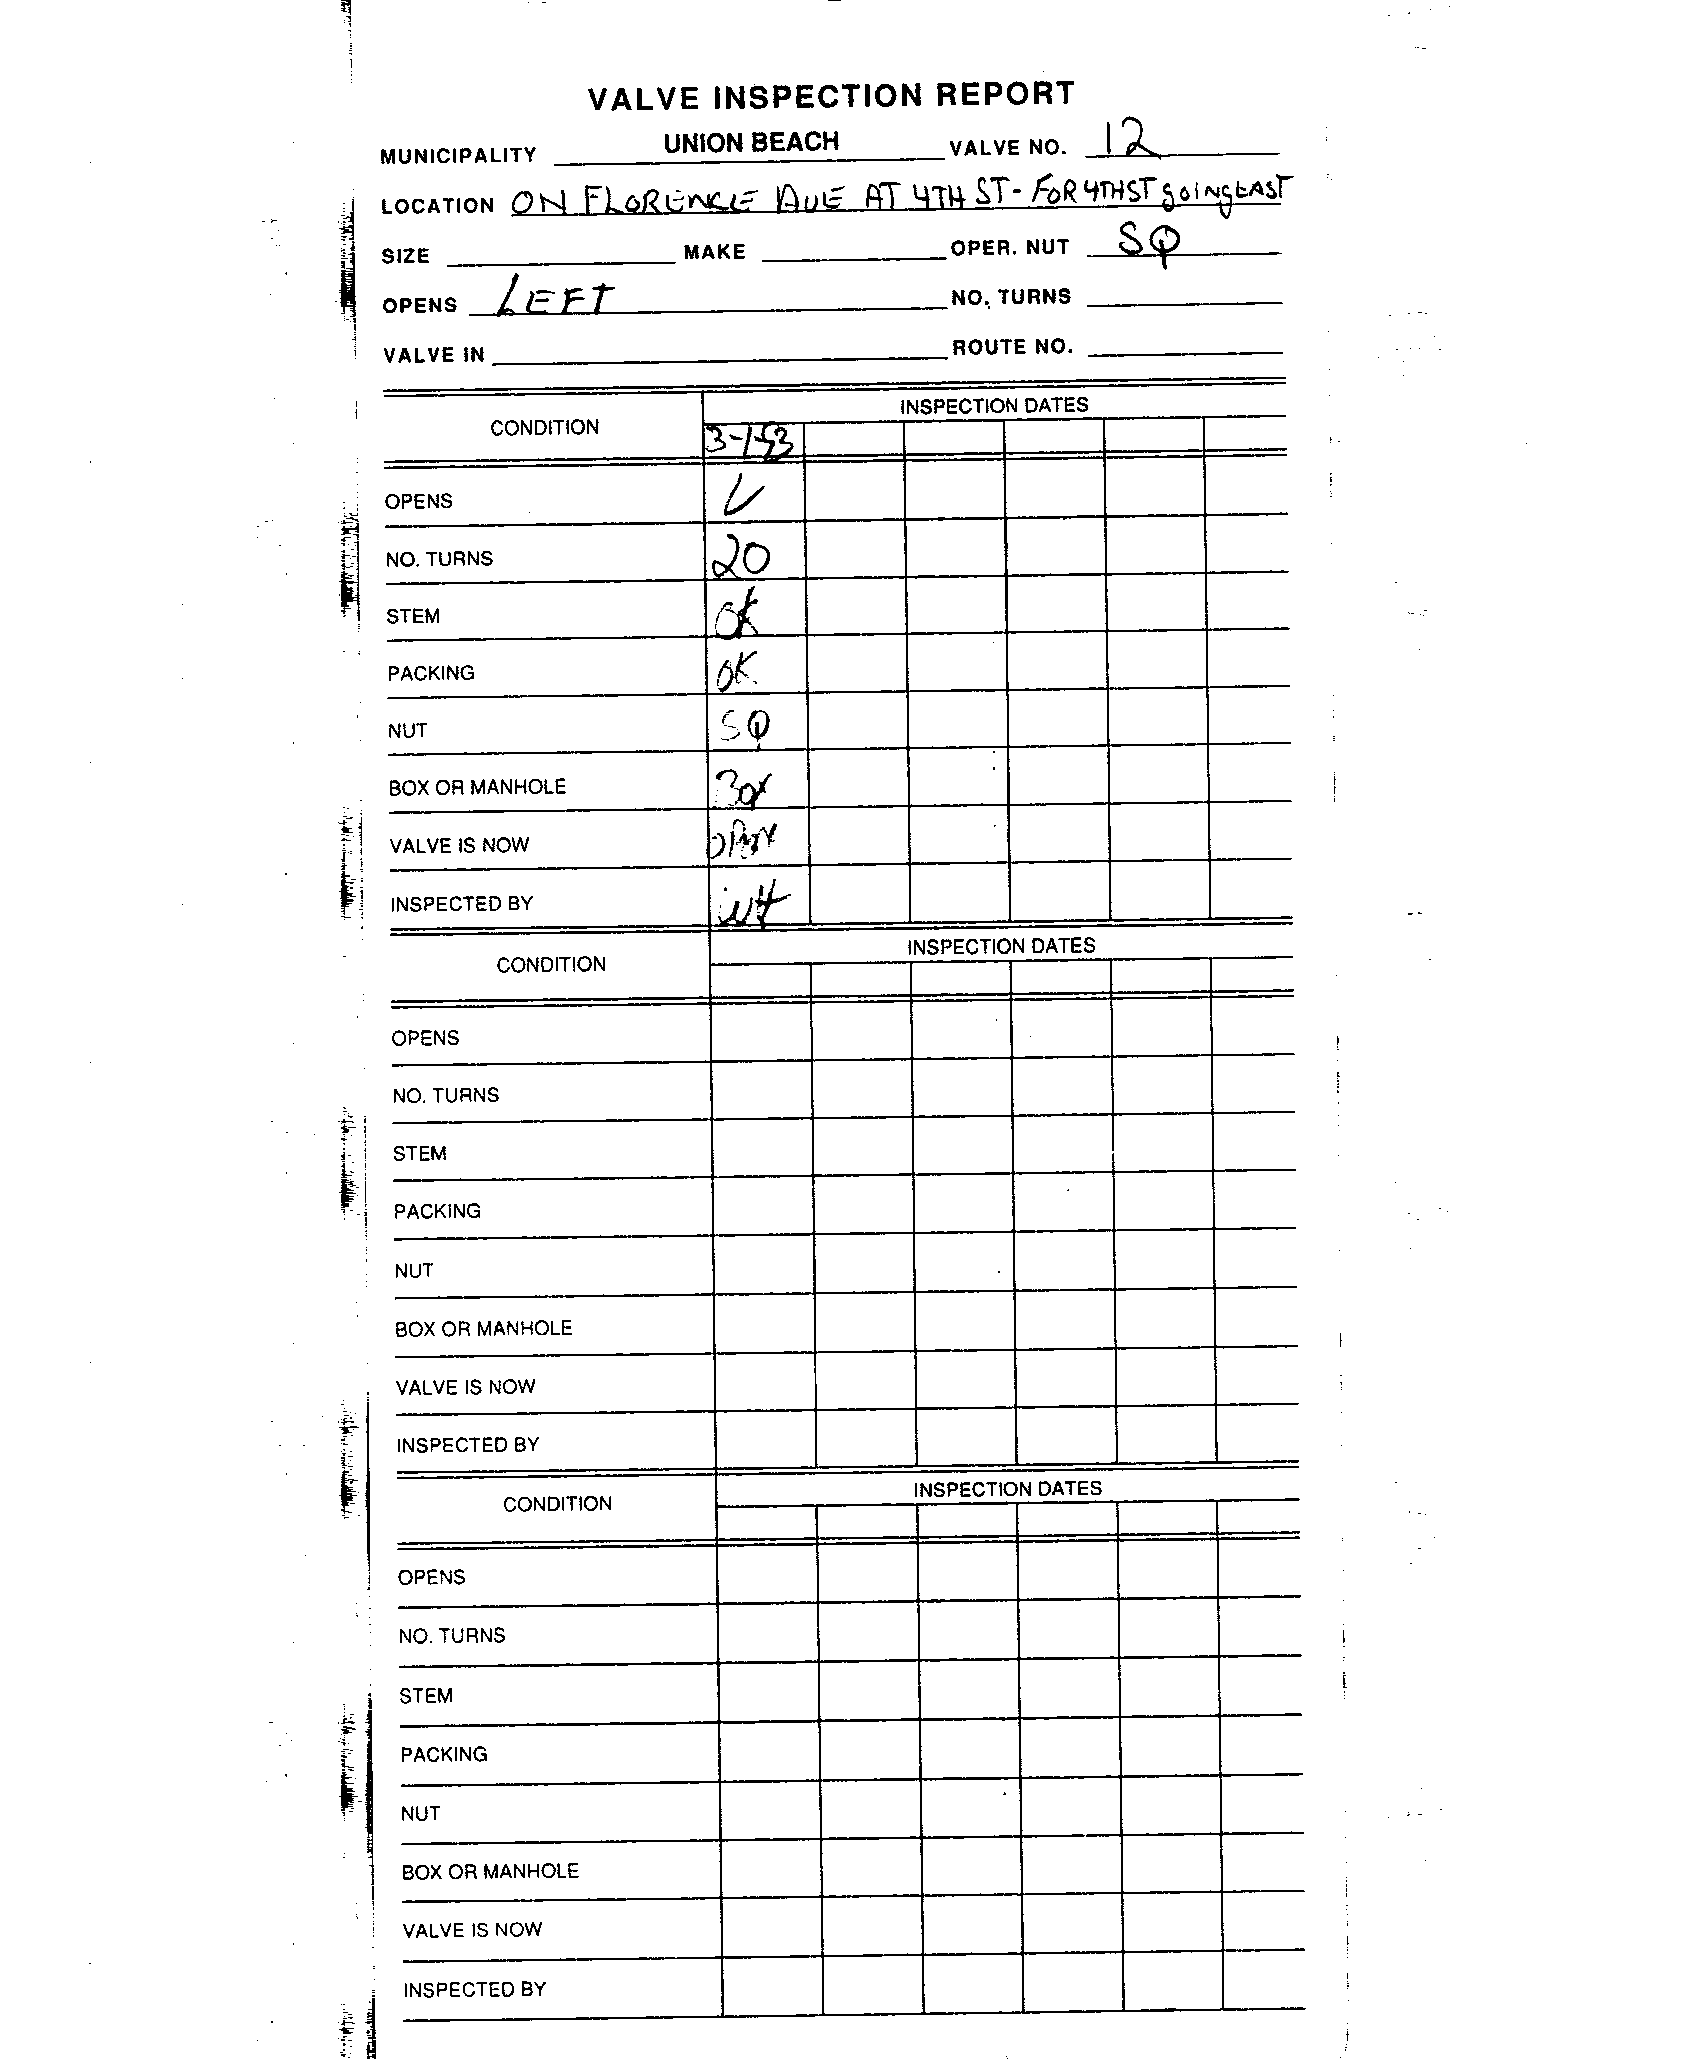 VALVE INSPECTION REPORT
MUNICIPALITY UNION BEACH VALVE NO. 12
LOCATION ON FLORENCE AVE AT 4TH ST - FOR 4TH ST going EAST
SIZE MAKE OPER. NUT SQ
OPENS LEFT NO. TURNS
VALVE IN ROUTE NO.
CONDITION INSPECTION DATES
OPENS
NO. TURNS 20
STEM OK
PACKING OK
NUT SQ
BOX OR MANHOLE Box
VALVE IS NOW OPEN
INSPECTED BY
CONDITION INSPECTION DATES
OPENS
NO. TURNS
STEM
PACKING
NUT
BOX OR MANHOLE
VALVE IS NOW
INSPECTED BY
CONDITION INSPECTION DATES
OPENS
NO. TURNS
STEM
PACKING
NUT
BOX OR MANHOLE
VALVE IS NOW
INSPECTED BY